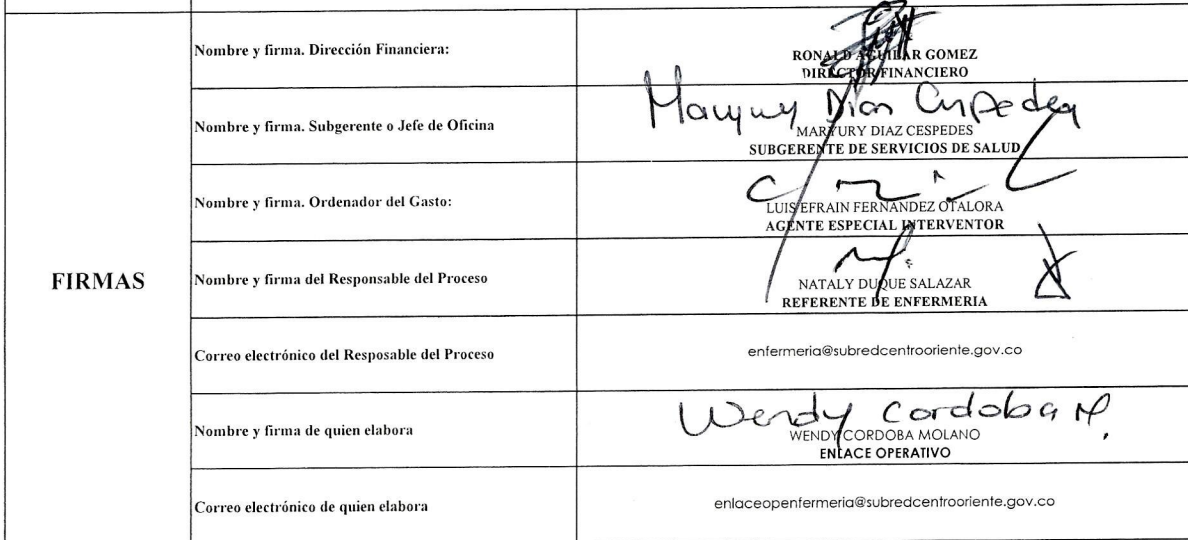 FIRMAS
Nombre y firma. Dirección Financiera:
RONALD AGUILAR GOMEZ
DIRECTOR FINANCIERO
Nombre y firma. Subgerente o Jefe de Oficina
MARYURY DIAZ CESPEDES
SUBGERENTE DE SERVICIOS DE SALUD
Nombre y firma. Ordenador del Gasto:
LUIS EFRAIN FERNANDEZ OTALORA
AGENTE ESPECIAL INTERVENTOR
Nombre y firma del Responsable del Proceso
NATALY DUQUE SALAZAR
REFERENTE DE ENFERMERIA
Correo electrónico del Resposable del Proceso
enfermeria@subredcentrooriente.gov.co
Nombre y firma de quien elabora
Wendy Cordoba M.
WENDY CORDOBA MOLANO
ENLACE OPERATIVO
Correo electrónico de quien elabora
enlaceopenfermeria@subredcentrooriente.gov.co